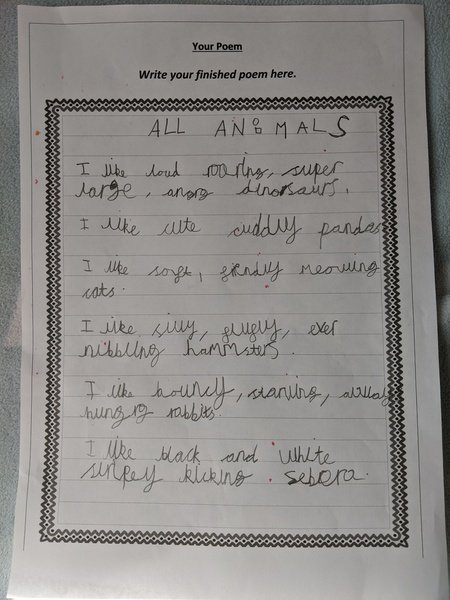 Your Poem
Write your finished poem here.
ALL ANIMALS
I like loud roaring, super
large, angry dinorsaurs.
I like cute cuddly pandas
I like soft, frendly meowing
cats.
I like silly, ever
nibbling hammsters.
I like bouncy,
hungry rabbits.
I like black and white
kicking sebora.